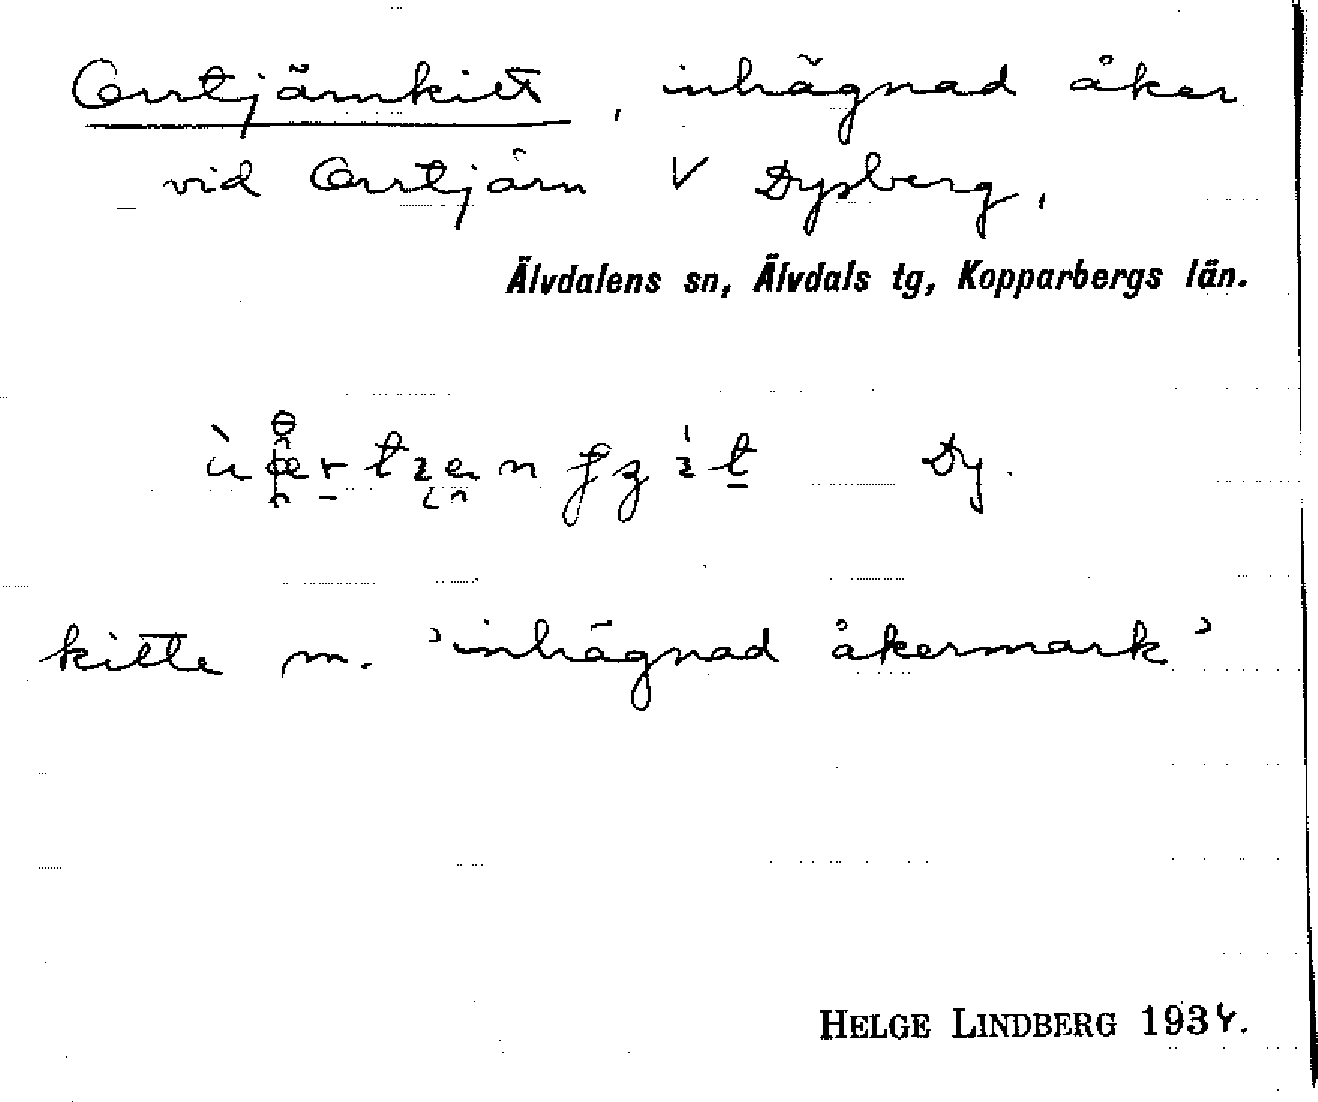 Orrtjärnkitt, inhägnad åker
vid Orrtjärn V Dysberg,
Älvdalens sn, Älvdals tg, Kopparbergs län.
Dy.
kitte m. 'inhägnad åkermark'
HELGE LINDBERG 1934.